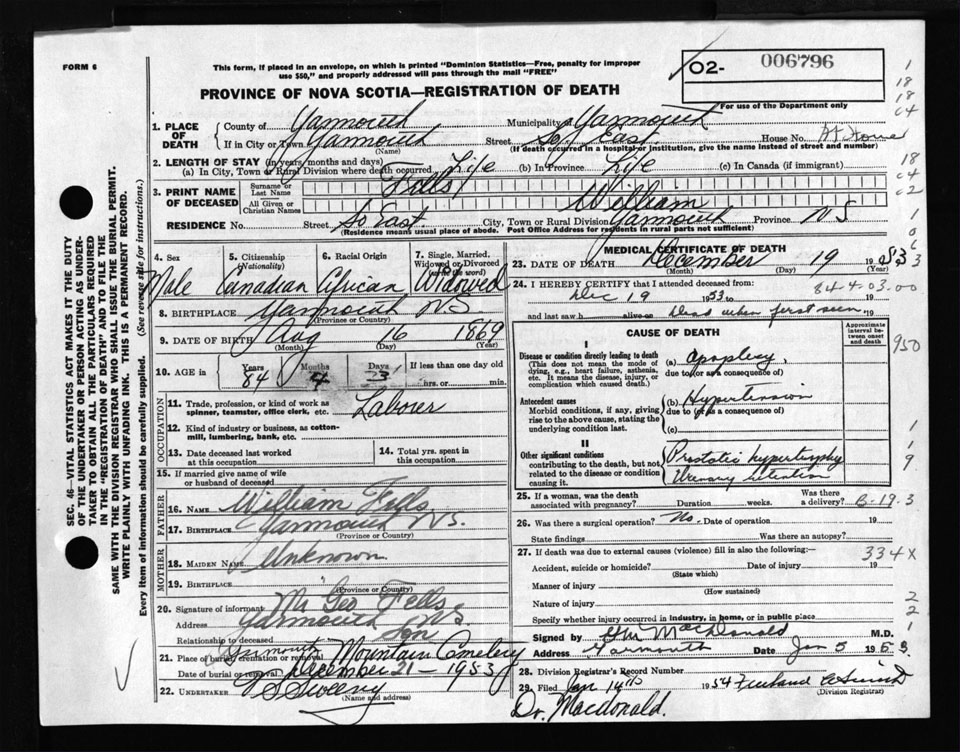 FORM 6
This form, if placed in an envelope, on which is printed "Dominion Statistics—Free, penalty for improper
use $50," and properly addressed will pass through the mail "FREE"
02- 006796
For use of the Department only
PROVINCE OF NOVA SCOTIA—REGISTRATION OF DEATH
1. PLACE OF DEATH { County of Yarmouth Municipality of Yarmouth
If in City or Town Yarmouth Street So. East House No.
(Name) (If death occurred in a hospital or institution, give the name instead of street and number)
2. LENGTH OF STAY (in years, months and days)
(a) In City, Town or Rural Division where death occurred Life (b) In Province Life (c) In Canada (if immigrant)
3. PRINT NAME OF DECEASED { Surname or Last Name Fells
All Given or Christian Names William
RESIDENCE No. Street So East City, Town or Rural Division Yarmouth Province NS
(Residence means usual place of abode. Post Office Address for residents in rural parts not sufficient)
4. Sex Male
5. Citizenship (Nationality) Canadian
6. Racial Origin African
7. Single, Married, Widowed or Divorced (write the word) Widowed
8. BIRTHPLACE Yarmouth NS
(Province or Country)
9. DATE OF BIRTH Aug 16 1869
(Month) (Day) (Year)
10. AGE in { Years 84 Months 4 Days 3 If less than one day old
hrs. or min.
OCCUPATION
11. Trade, profession, or kind of work as
spinner, teamster, office clerk, etc. Laborer
12. Kind of industry or business, as cotton-
mill, lumbering, bank, etc.
13. Date deceased last worked
at this occupation
14. Total yrs. spent in
this occupation
15. If married give name of wife
or husband of deceased
FATHER
16. Name William Fells
17. Birthplace Yarmouth NS.
(Province or Country)
MOTHER
18. MAIDEN NAME Unknown
19. BIRTHPLACE
(Province or Country)
20. Signature of informant Mr Geo Fells
Address Yarmouth NS
Relationship to deceased Son
21. Place of burial, cremation or removal Yarmouth Mountain Cemetery
Date of burial or removal December 21 – 1953
22. UNDERTAKER Sweeny
(Name and address)
MEDICAL CERTIFICATE OF DEATH
23. DATE OF DEATH December 19 1953
(Month) (Day) (Year)
24. I HEREBY CERTIFY that I attended deceased from:
Dec 19 1953 to 19
844-03.00
and last saw h alive on Dead when first seen 19
CAUSE OF DEATH
Approximate interval between onset and death
I
Disease or condition directly leading to death
(This does not mean the mode of
dying, e.g., heart failure, asthenia,
etc. It means the disease, injury, or
complication which caused death.)
(a) Apoplexy,
due to (or as a consequence of)
Antecedent causes
Morbid conditions, if any, giving
rise to the above cause, stating the
underlying condition last.
(b) Hypertension
due to (or as a consequence of)
(c)
II
Other significant conditions
contributing to the death, but not
related to the disease or condition
causing it.
Prostatic hypertrophy
Urinary retention
25. If a woman, was the death
associated with pregnancy? Duration weeks. Was there a delivery?
B-19.3
26. Was there a surgical operation? No. Date of operation 19
State findings Was there an autopsy?
27. If death was due to external causes (violence) fill in also the following:—
334 X
Accident, suicide or homicide? Date of injury 19
(State which)
Manner of injury
(How sustained)
Nature of injury
Specify whether injury occurred in industry, in home, or in public place
Signed by MacDonald M.D.
Address Yarmouth Date Jan 5 195
28. Division Registrar's Record Number
29. Filed Jan 14th 1954
(Division Registrar)
Dr. Macdonald.
SEC. 46—VITAL STATISTICS ACT MAKES IT THE DUTY
OF THE UNDERTAKER OR PERSON ACTING AS UNDER-
TAKER TO OBTAIN ALL THE PARTICULARS REQUIRED
IN THE "REGISTRATION OF DEATH" AND TO FILE THE
SAME WITH THE DIVISION REGISTRAR WHO SHALL ISSUE THE BURIAL PERMIT.
WRITE PLAINLY WITH UNFADING INK. THIS IS A PERMANENT RECORD.
Every item of information should be carefully supplied. (See reverse side for instructions.)
1
18
18
04
18
04
02
1
0
6
3
950
1
1
9
2
2
1